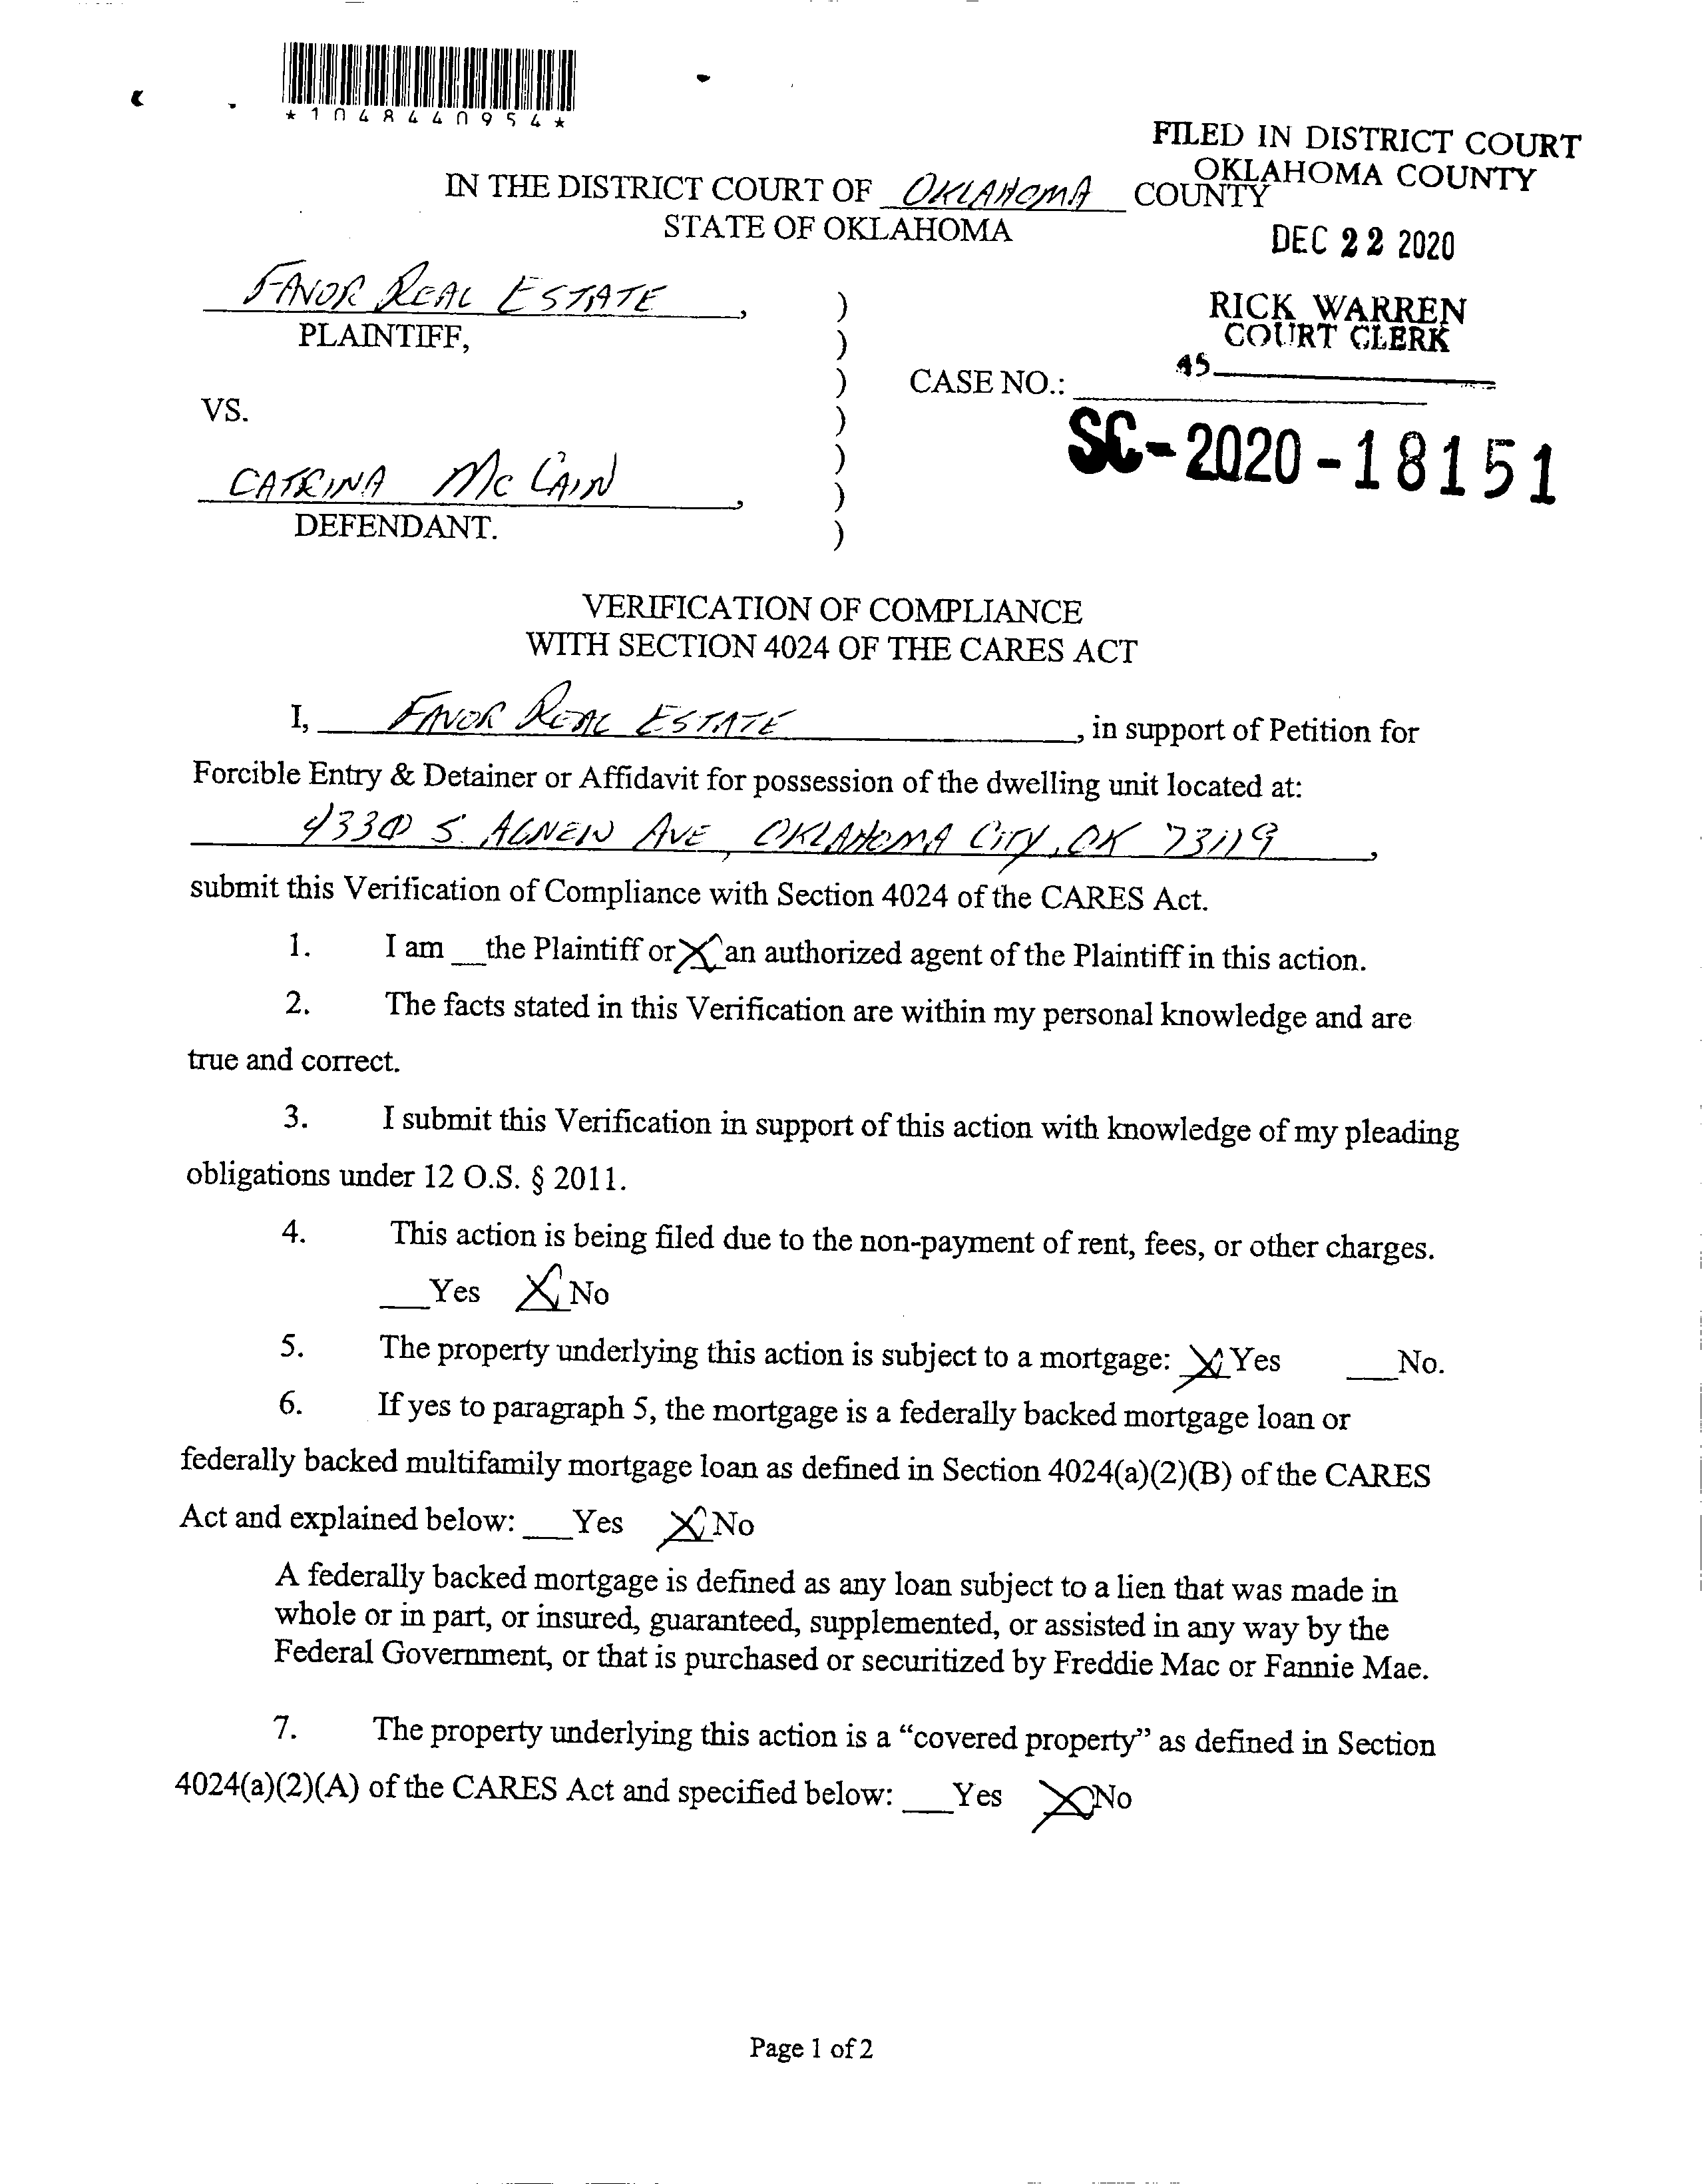 *1048440954*
FILED IN DISTRICT COURT
OKLAHOMA COUNTY
IN THE DISTRICT COURT OF OKLAHOMA COUNTY
STATE OF OKLAHOMA
DEC 22 2020
FAVOR REAL ESTATE,
PLAINTIFF,
RICK WARREN
COURT CLERK
45
CASE NO.:
VS.
SC-2020-18151
CATRINA McCAIN,
DEFENDANT.
)
)
)
)
)
)
)
VERIFICATION OF COMPLIANCE
WITH SECTION 4024 OF THE CARES ACT
I, FAVOR REAL ESTATE, in support of Petition for
Forcible Entry & Detainer or Affidavit for possession of the dwelling unit located at:
4330 S. AGNEW AVE, OKLAHOMA CITY, OK 73119,
submit this Verification of Compliance with Section 4024 of the CARES Act.
1. I am __the Plaintiff or X an authorized agent of the Plaintiff in this action.
2. The facts stated in this Verification are within my personal knowledge and are
true and correct.
3. I submit this Verification in support of this action with knowledge of my pleading
obligations under 12 O.S. § 2011.
4. This action is being filed due to the non-payment of rent, fees, or other charges.
___Yes X No
5. The property underlying this action is subject to a mortgage: X Yes ___No.
6. If yes to paragraph 5, the mortgage is a federally backed mortgage loan or
federally backed multifamily mortgage loan as defined in Section 4024(a)(2)(B) of the CARES
Act and explained below: ___Yes X No
A federally backed mortgage is defined as any loan subject to a lien that was made in
whole or in part, or insured, guaranteed, supplemented, or assisted in any way by the
Federal Government, or that is purchased or securitized by Freddie Mac or Fannie Mae.
7. The property underlying this action is a “covered property” as defined in Section
4024(a)(2)(A) of the CARES Act and specified below: ___Yes X No
Page 1 of 2